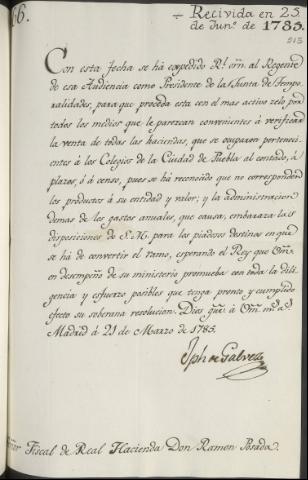 66.
÷ Recivida en 25
de Jun.º de 1785.
213
Con esta fecha se há expedido R.l orñ. al Regente
de esa Audiencia como Presidente de la Junta de Tempo
ralidades, para que proceda esta con el mas activo zelo por
todos los medios que le parezcan convenientes á verificar
la venta de todas las haciendas, que se ocuparon pertenecï
entes á los Colegios de la Ciudad de Puebla al contado, á
plazos, ó á censo, pues se há reconocido que no corresponden
los productos á su entidad y valor; y la administracion
demas de los gastos anuales, que causa, embaraza las
disposiciones de S.M. para los piadosos destinos en que
se há de convertir el ramo, esperando el Rey que
en desempeño de su ministerio promueba con toda la dili
gencia y esfuerzo posibles que tenga pronto y cumplido
efecto su soberana resolucion. Dios gũe. á m.s a.s
Madrid á 21 de Marzo de 1785.
Jph de Galvez
Fiscal de Real Hacienda Don Ramon Posada.